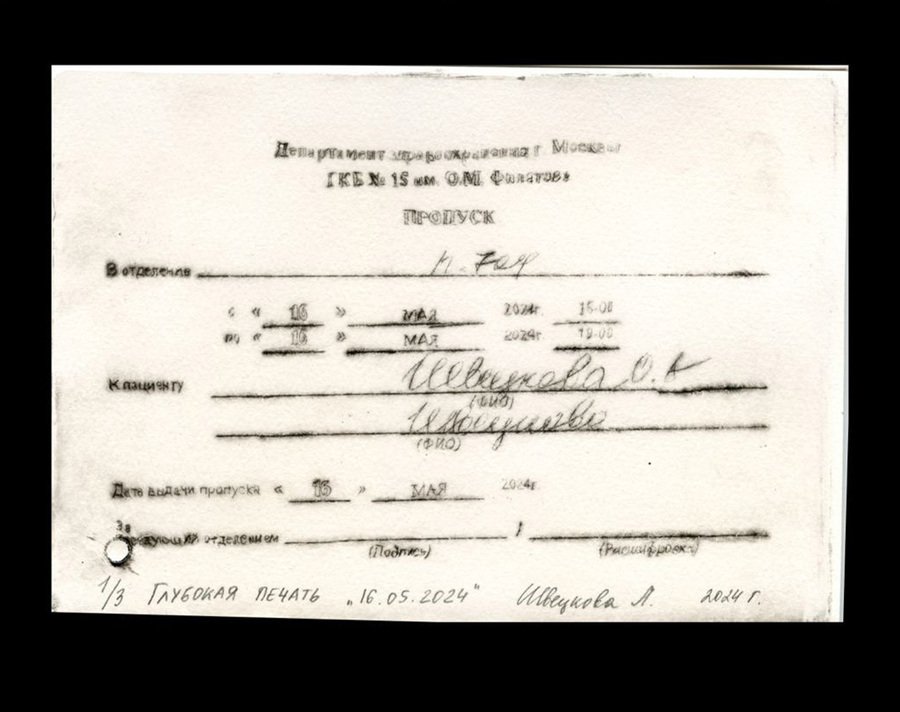 Департамент здравоохранения г. Москвы
ГКБ № 15 им. О.М. Филатова
ПРОПУСК
В отделение
с « 16 » МАЯ 2024г. 15-00
по « 16 » МАЯ 2024г. 19-00
К пациенту Швецкова О.А
(ФИО)
(ФИО)
Дата выдачи пропуска « 16 » МАЯ 2024г.
Заведующий отделением /
(Подпись) (Расшифровка)
1/3 ГЛУБОКАЯ ПЕЧАТЬ „16.05.2024" Швецкова Л. 2024 г.